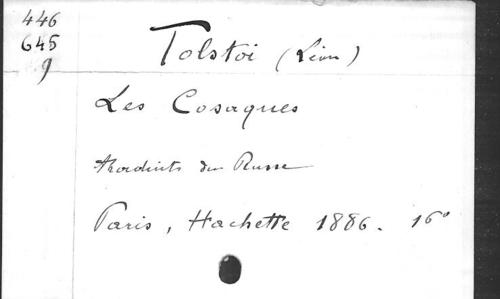 446
645
9
Tolstoi (Léon)
Les Cosaques
Traduits du Russe
Paris, Hachette 1886. 16°